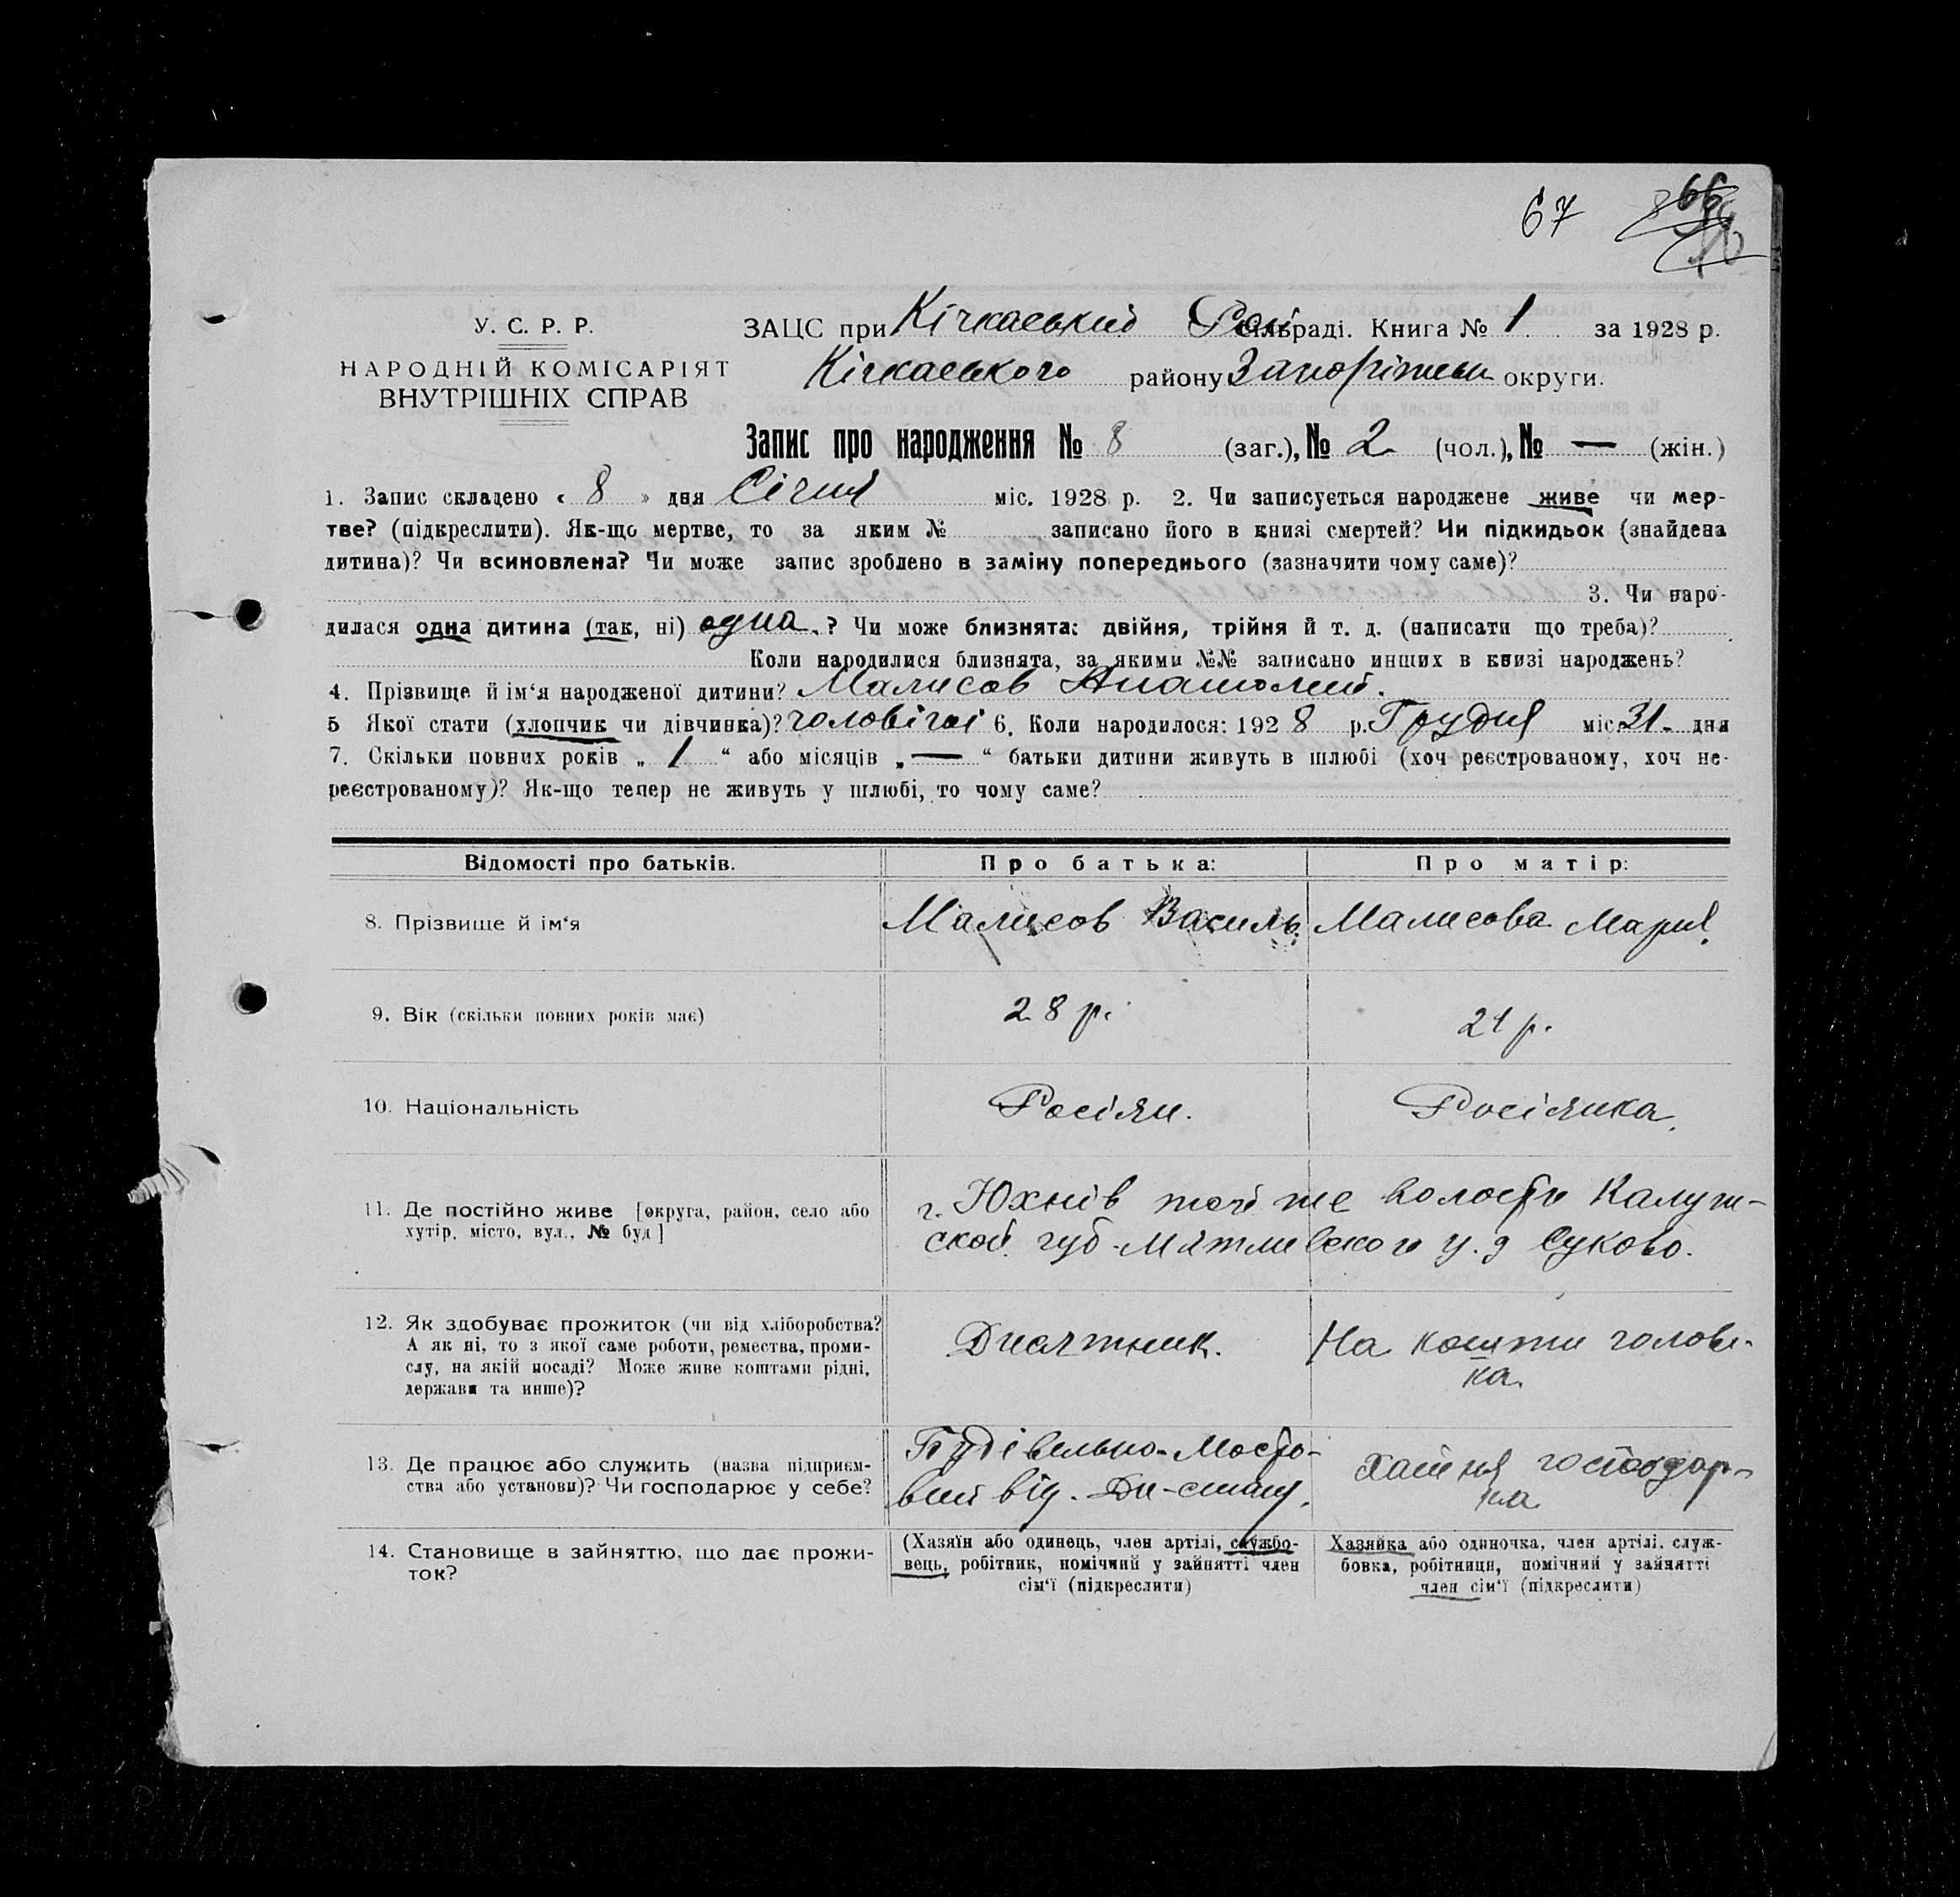 67 66
У. С. Р. Р.
НАРОДНІЙ КОМІСАРІЯТ
ВНУТРІШНІХ СПРАВ
ЗАЦС при Кічкаський Сільраді. Книга № 1 за 1928 р.
Кічкаського району Запоріжськ округи.
Запис про народження № 8 (заг.), № 2 (чол.), № — (жін.)
1. Запис складено « 8 » дня Січня міс. 1928 р. 2. Чи записується народжене живе чи мер-
тве? (підкреслити). Як-що мертве, то за яким № записано його в книзі смертей? Чи підкидьок (знайдена
дитина)? Чи всиновлена? Чи може запис зроблено в заміну попереднього (зазначити чому саме)?
3. Чи наро-
дилася одна дитина (так, ні) одна. ? Чи може близнята: двійня, трійня й т. д. (написати що треба)?
Коли народилися близнята, за якими №№ записано инших в книзі народжень?
4. Прізвище й ім‘я народженої дитини? Малисов Анатолий.
5 Якої стати (хлопчик чи дівчинка)? чоловічої 6. Коли народилося: 192 8 р. Грудня міс. 31. дня
7. Скільки повних років „ 1 “ або місяців „ — “ батьки дитини живуть в шлюбі (хоч реєстрованому, хоч не-
реєстрованому)? Як-що тепер не живуть у шлюбі, то чому саме?
Відомості про батьків. Про батька: Про матір:
8. Прізвище й ім‘я Малисов Василь. Малисова Марія.
9. Вік (скільки повних років має) 28 р. 21 р.
10. Національність Росіян. Росіянка.
11. Де постійно живе [округа, район, село або
хутір, місто, вул., № буд]
г. Юхнів тої же волости Калуж-
ской губ. Мятлевского у. д Суково.
12. Як здобуває прожиток (чи від хліборобства?
А як ні, то з якої саме роботи, ремества, проми-
слу, на якій посаді? Може живе коштами рідні,
держави та инше)?
Десятник. На кошти чолові-
ка.
13. Де працює або служить (назва підприєм-
ства або установи)? Чи господарює у себе?
Будівельно-Мосто-
вий від. Дн-стану.
Хатня господар-
ка
14. Становище в зайняттю, що дає прожи-
ток?
(Хазяїн або одинець, член артілі, службо-
вець, робітник, помічний у зайнятті член
сім‘ї (підкреслити)
Хазяйка або одиночка, член артілі, служ-
бовка, робітниця, помічний у зайнятті
член сім‘ї (підкреслити)